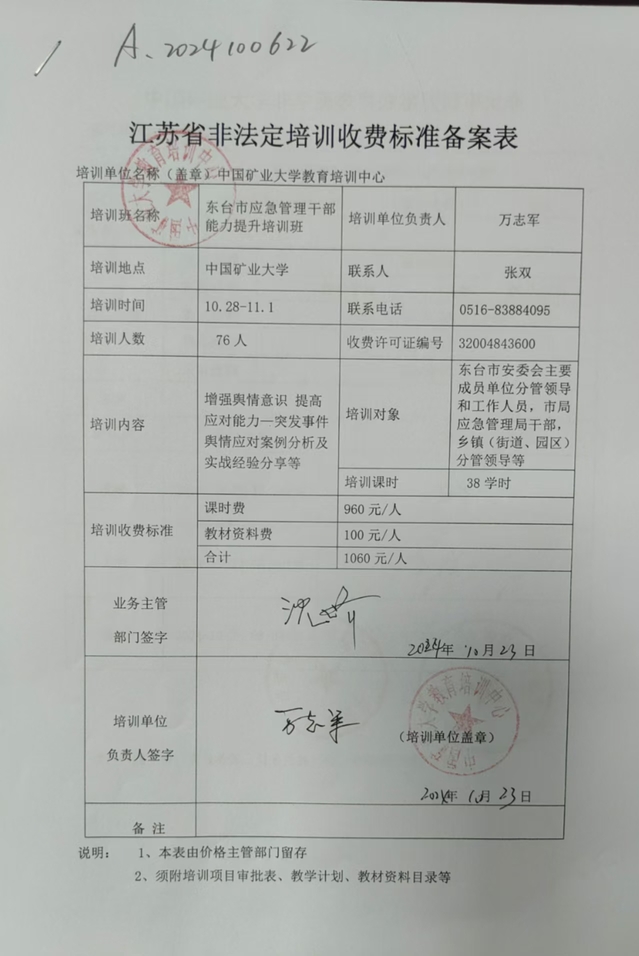 A. 2024100622
江苏省非法定培训收费标准备案表
培训单位名称（盖章）中国矿业大学教育培训中心
培训班名称
东台市应急管理干部
能力提升培训班
培训单位负责人
万志军
培训地点
中国矿业大学
联系人
张双
培训时间
10.28-11.1
联系电话
0516-83884095
培训人数
76 人
收费许可证编号
32004843600
培训内容
增强舆情意识 提高
应对能力—突发事件
舆情应对案例分析及
实战经验分享等
培训对象
东台市安委会主要
成员单位分管领导
和工作人员，市局
应急管理局干部，
乡镇（街道、园区）
分管领导等
培训课时
38 学时
培训收费标准
课时费
960 元/人
教材资料费
100 元/人
合计
1060 元/人
业务主管
部门签字
2024年 10月 23日
培训单位
负责人签字
万志军
（培训单位盖章）
2024年 10月 23日
备 注
说明： 1、本表由价格主管部门留存
2、须附培训项目审批表、教学计划、教材资料目录等